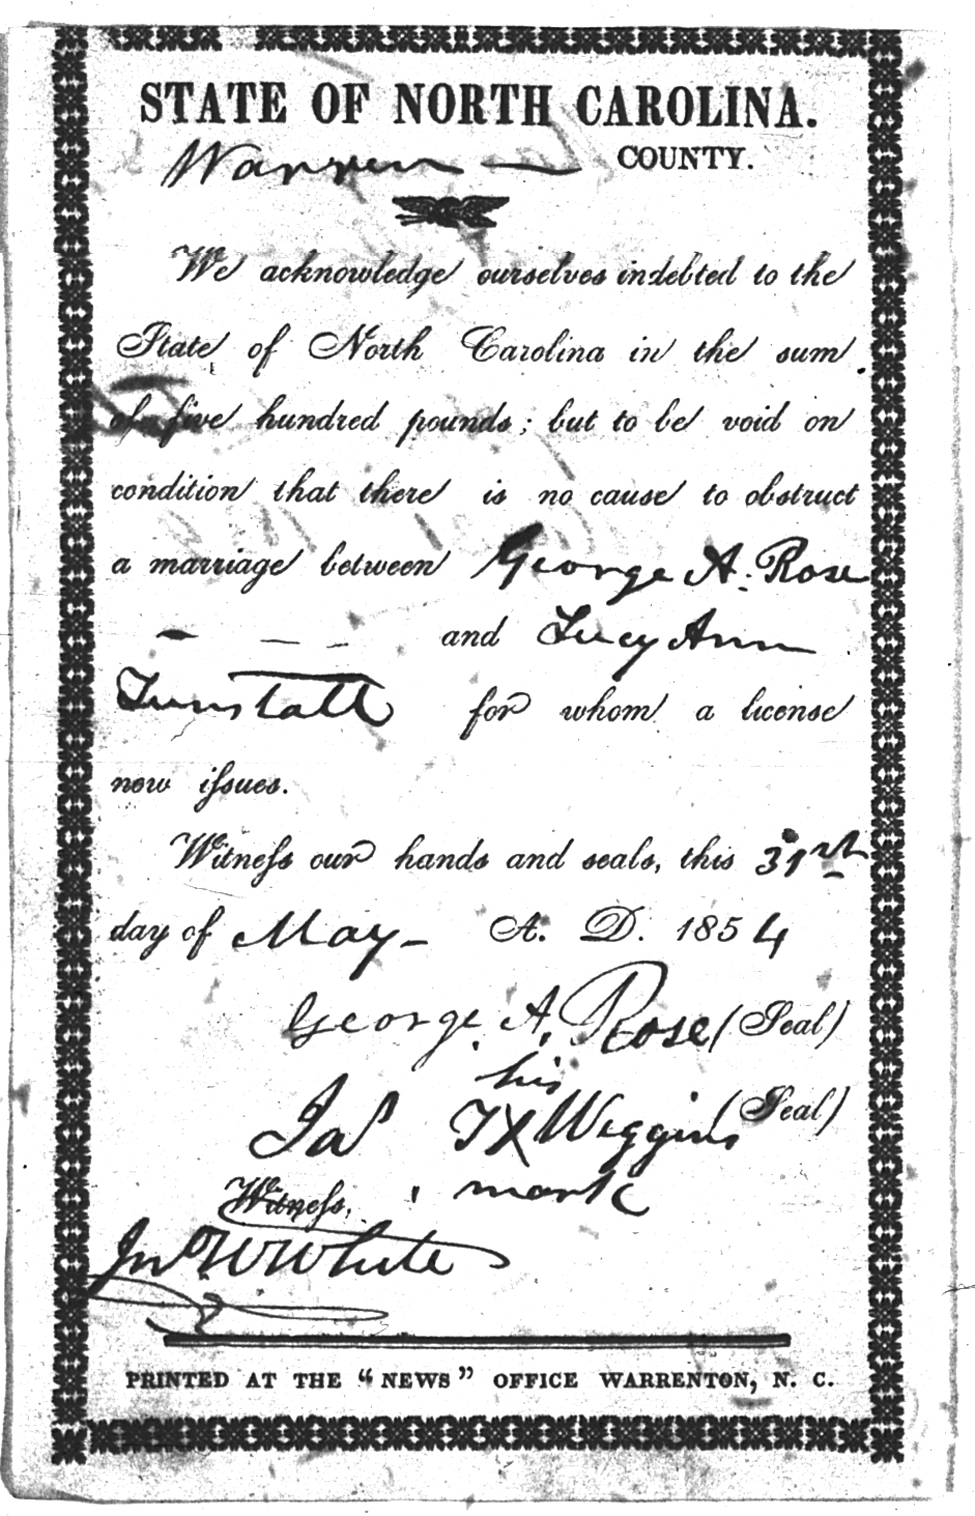 STATE OF NORTH CAROLINA.
Warren — COUNTY.
We acknowledge ourselves indebted to the
State of North Carolina in the sum
of five hundred pounds; but to be void on
condition that there is no cause to obstruct
a marriage between George A. Rose
— — — and Lucy Ann
Tunstall for whom a license
now issues.
Witness our hands and seals, this 31st
day of May — A. D. 1854
George A. Rose (Seal)
his
Jas T X Wiggins (Seal)
mark
Witness,
Jno W White
PRINTED AT THE "NEWS" OFFICE WARRENTON, N. C.